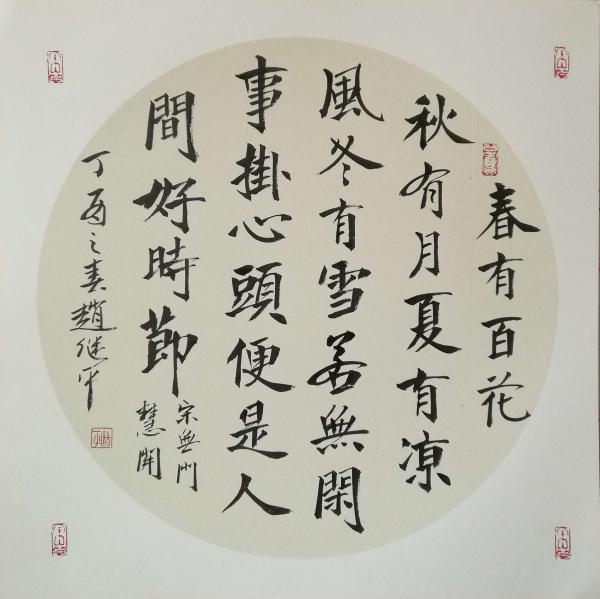 春有百花
秋有月夏有凉
風冬有雪若無閑
事掛心頭便是人
間好時節
宗無門
慧開
丁酉之春趙继平